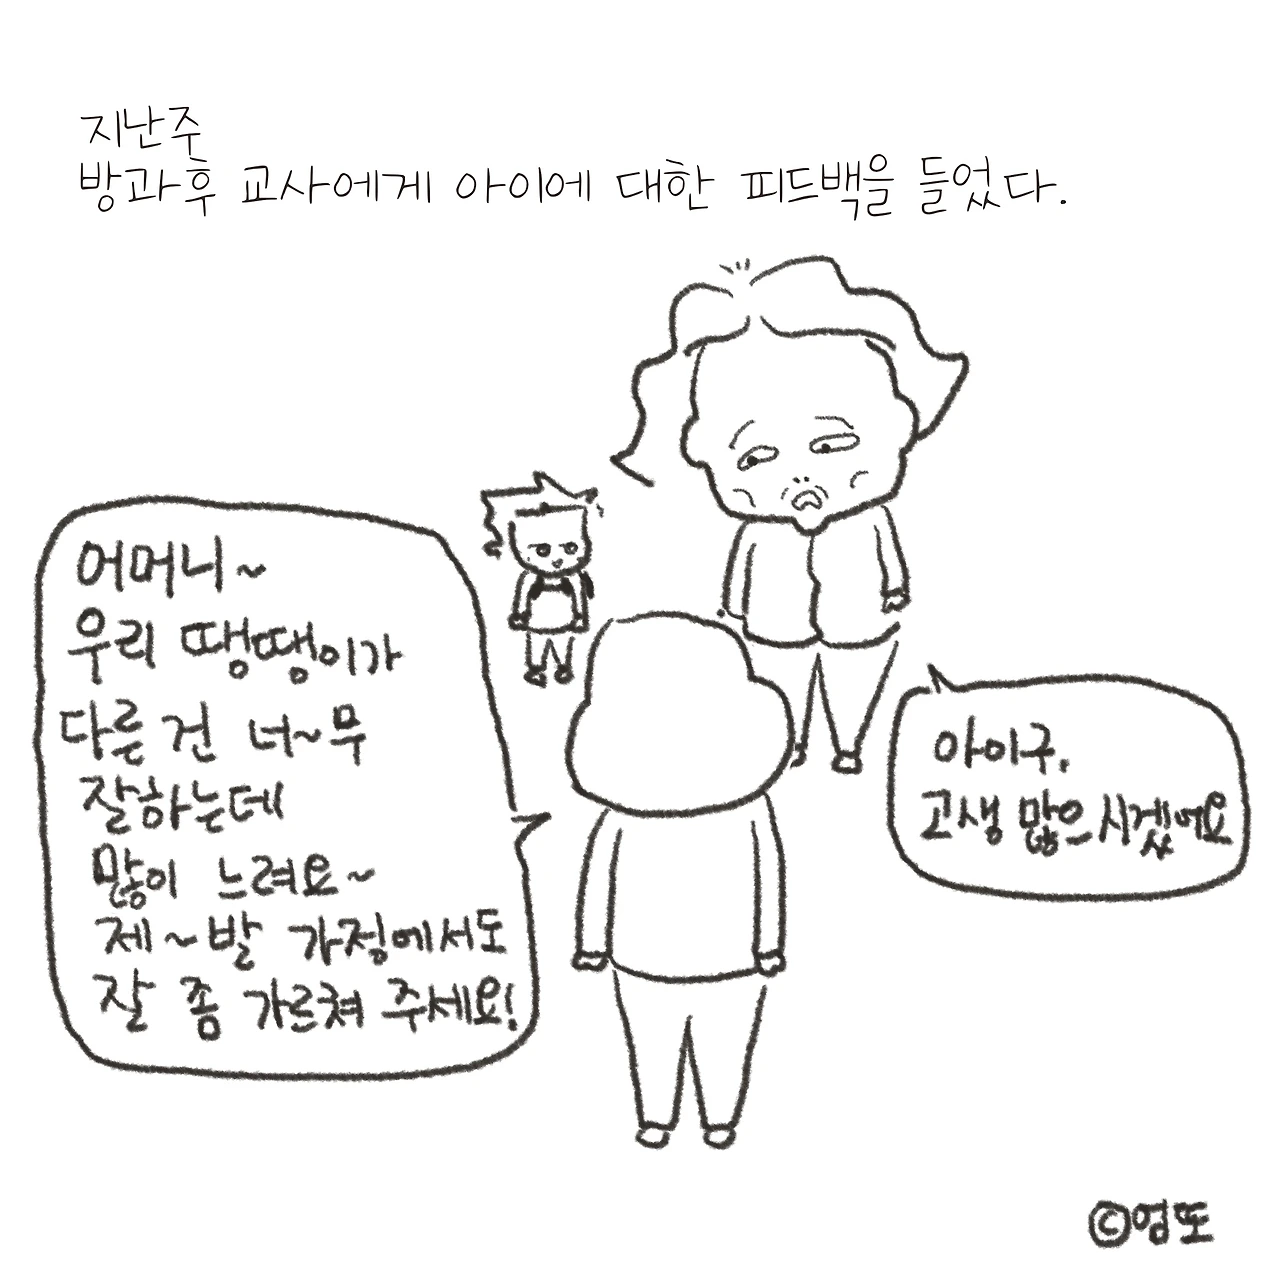 지난주
방과후 교사에게 아이에 대한 피드백을 들었다.
어머니~
우리 땡땡이가
다른 건 너~무
잘하는데
많이 느려요~
제~발 가정에서도
잘 좀 가르쳐 주세요!
아이구,
고생 많으시겠어요
©영또